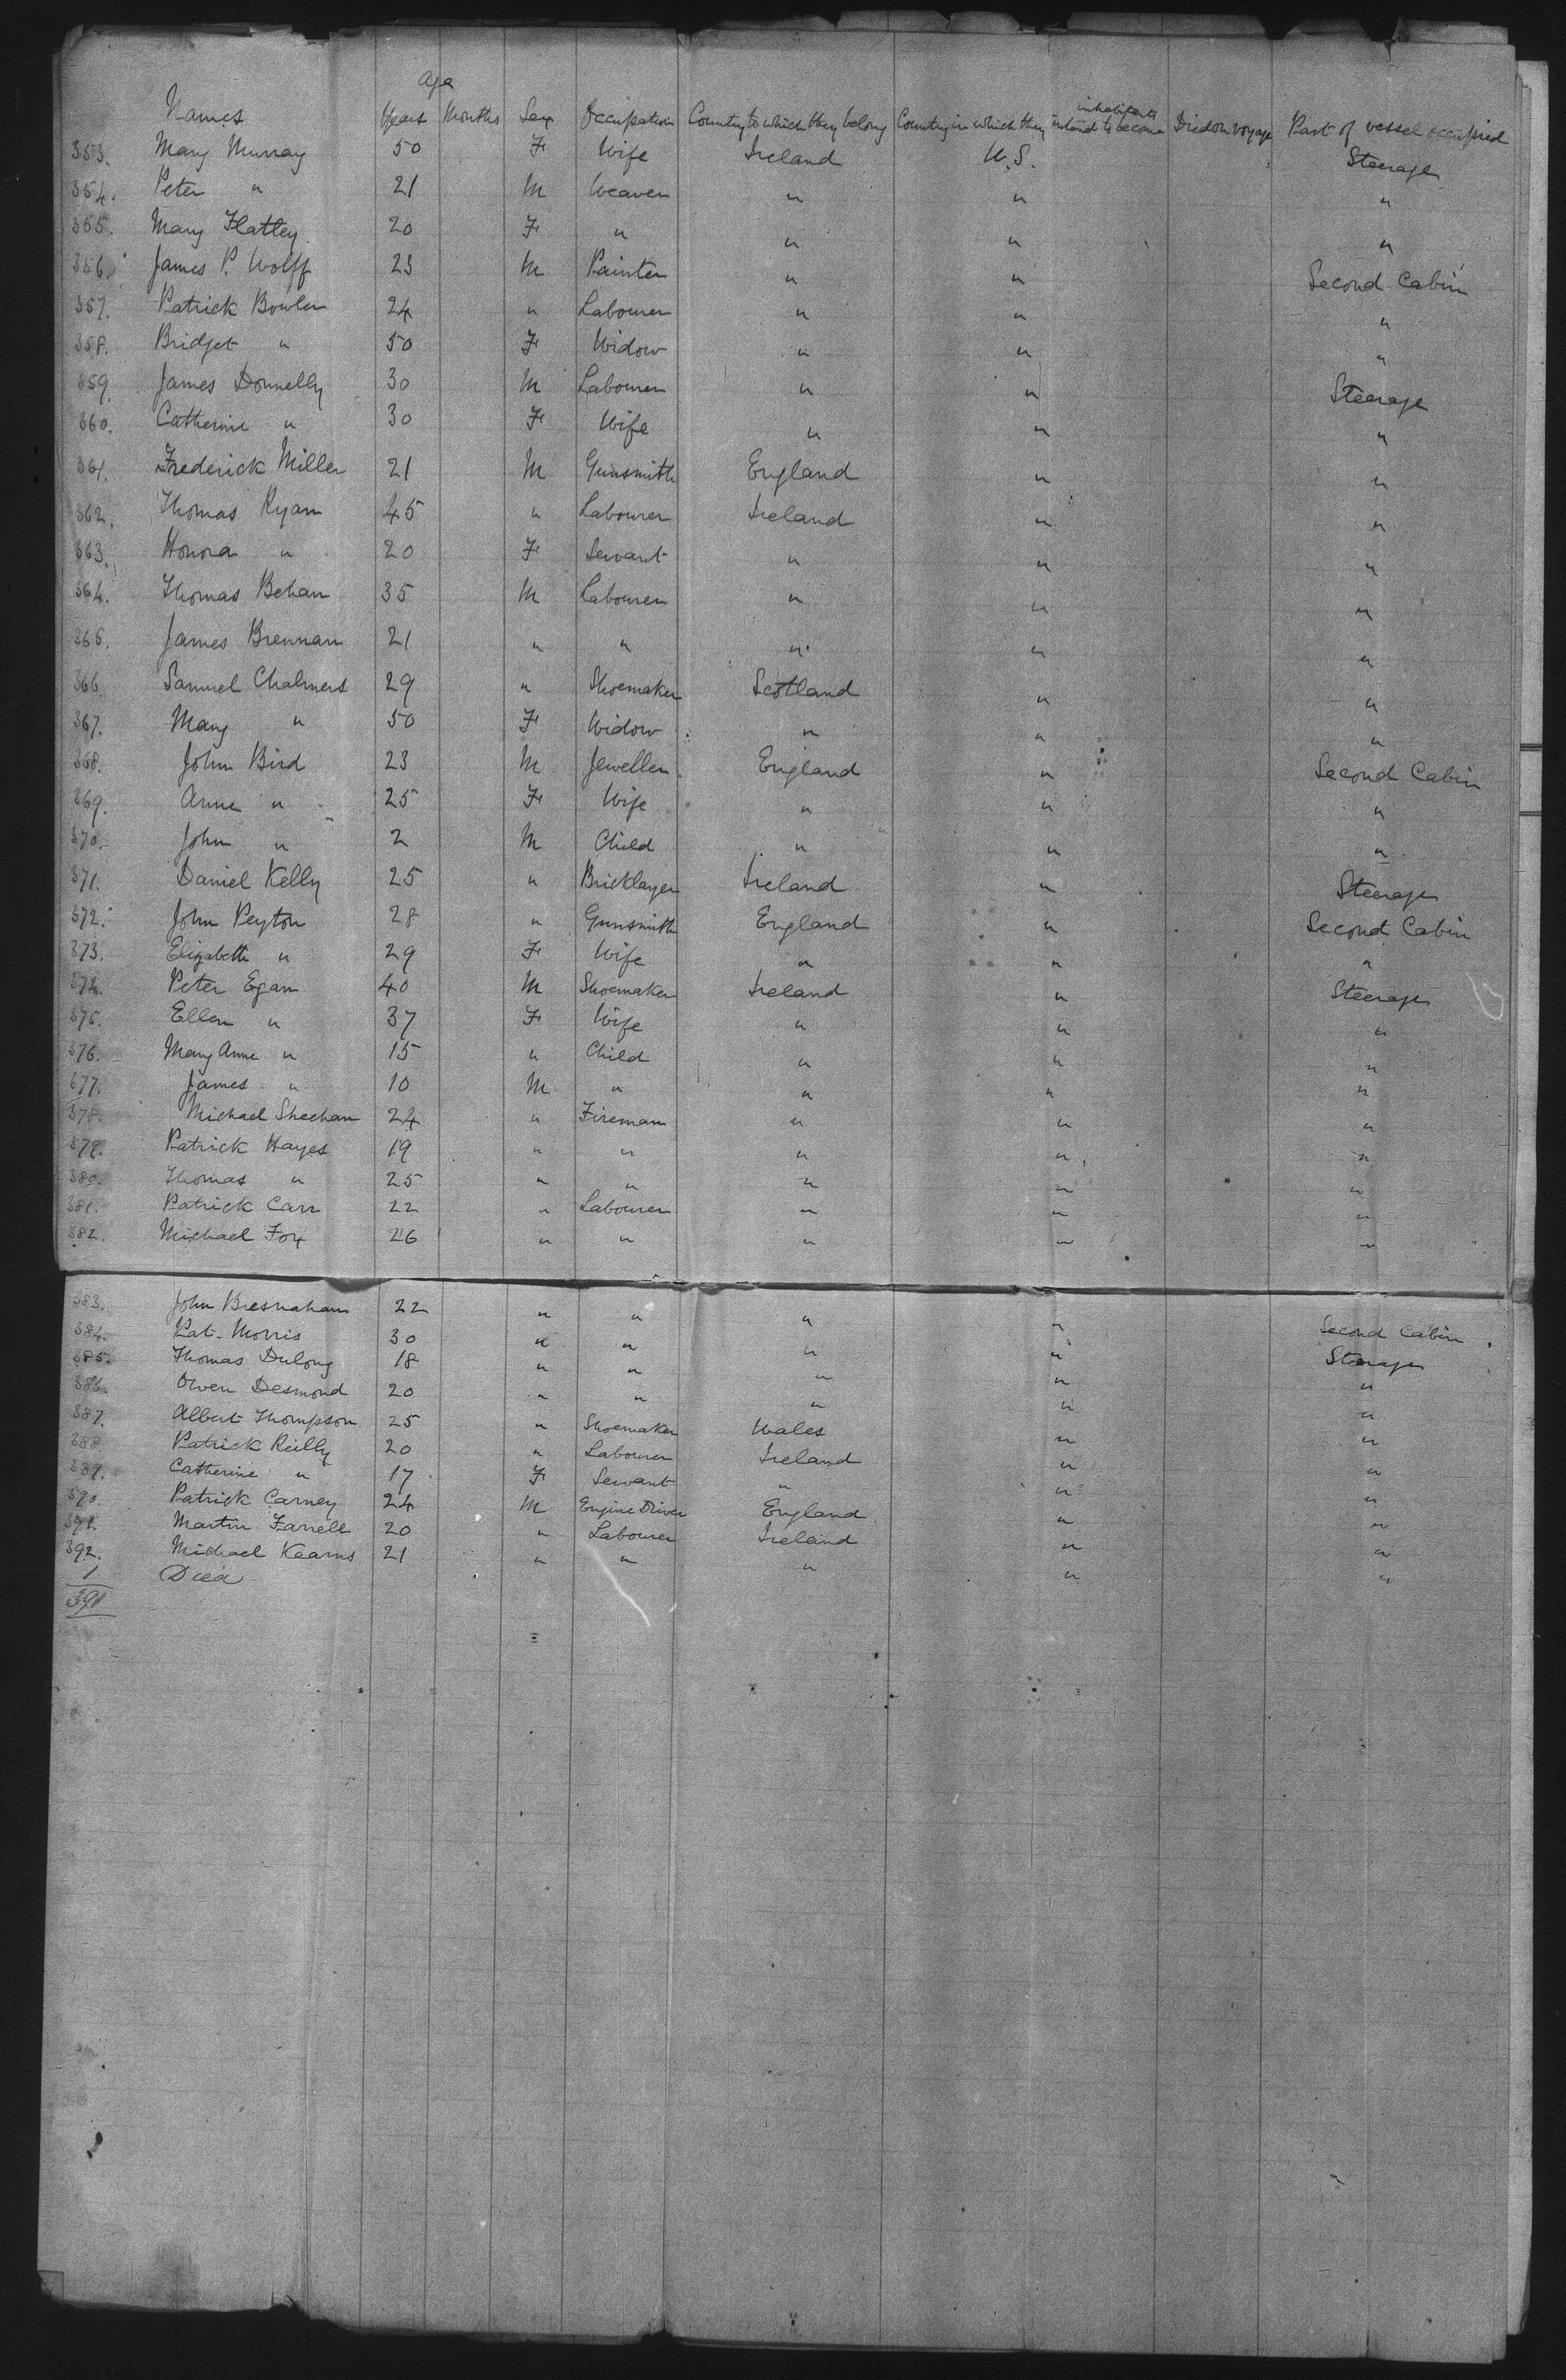 Age
Names Years Months Sex Occupation Country to which they belong Country in which they intend to become inhabitants Died on voyage Part of vessel occupied
353. Mary Murray 50 F Wife Ireland U.S. Steerage
354. Peter " 21 M Weaver " " "
355. Mary Flatley 20 F " " " "
356. James P. Wolff 23 M Painter " " Second Cabin
357. Patrick Bowler 24 " Labourer " " "
358. Bridget " 50 F Widow " " "
359. James Donnelly 30 M Labourer " " Steerage
360. Catherine " 30 F Wife " " "
361. Frederick Miller 21 M Gunsmith England " "
362. Thomas Ryan 45 " Labourer Ireland " "
363. Honora " 20 F Servant " " "
364. Thomas Behan 35 M Labourer " " "
365. James Brennan 21 " " " " "
366. Samuel Chalmers 29 " Shoemaker Scotland " "
367. Mary " 50 F Widow " " "
368. John Bird 23 M Jeweller England " Second Cabin
369. Anne " 25 F Wife " " "
370. John " 2 M Child " " "
371. Daniel Kelly 25 " Bricklayer Ireland " Steerage
372. John Peyton 28 " Gunsmith England " Second Cabin
373. Elizabeth " 29 F Wife " " "
374. Peter Egan 40 M Shoemaker Ireland " Steerage
375. Ellen " 37 F Wife " " "
376. Mary Anne " 15 " Child " " "
377. James " 10 M " " " "
378. Michael Sheehan 24 " Fireman " " "
379. Patrick Hayes 19 " " " " "
380. Thomas " 25 " " " " "
381. Patrick Carr 22 " Labourer " " "
382. Michael Fox 26 " " " " "
383. John Bresnahan 22 " " " " Second Cabin
384. Pat. Morris 30 " " " " Steerage
385. Thomas Dulong 18 " " " " "
386. Owen Desmond 20 " " " " "
387. Albert Thompson 25 " Shoemaker Wales " "
388. Patrick Reilly 20 " Labourer Ireland " "
389. Catherine " 17 F Servant " " "
390. Patrick Carney 24 M Engine Driver England " "
391. Martin Farrell 20 " Labourer Ireland " "
392. Michael Kearns 21 " " " " "
1 Died
391